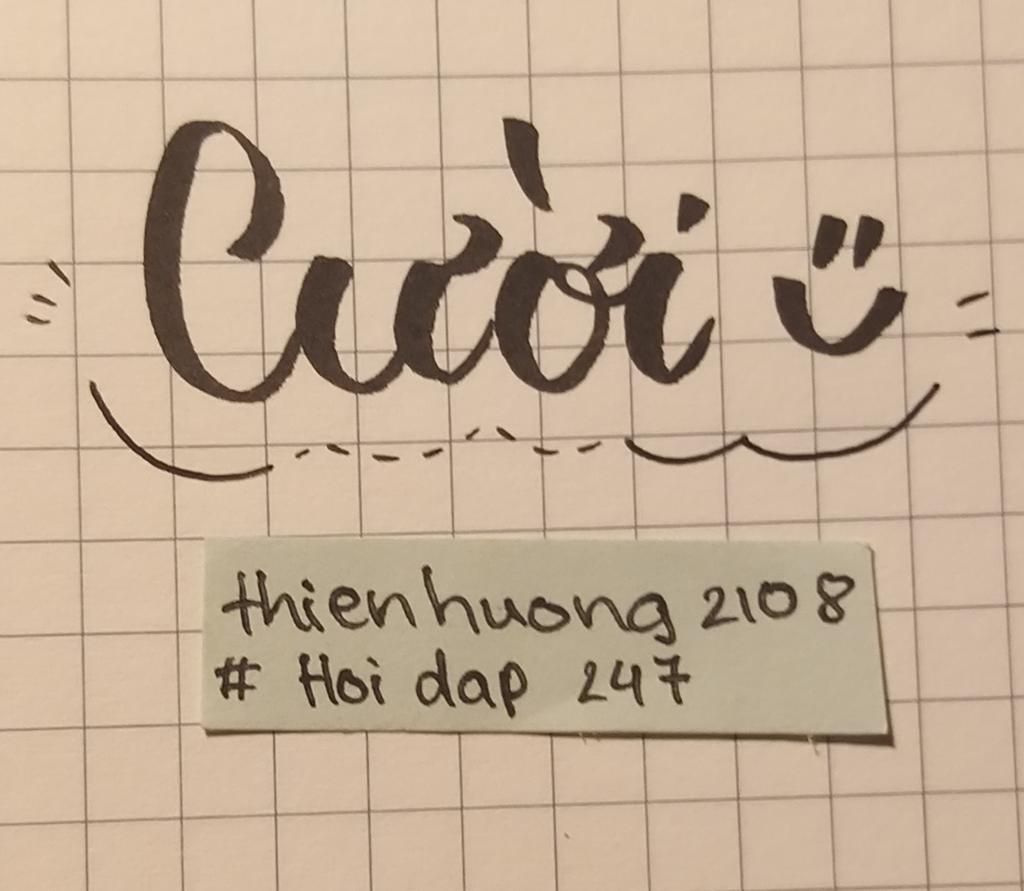 Cười
thienhuong 2108
# Hoi dap 247